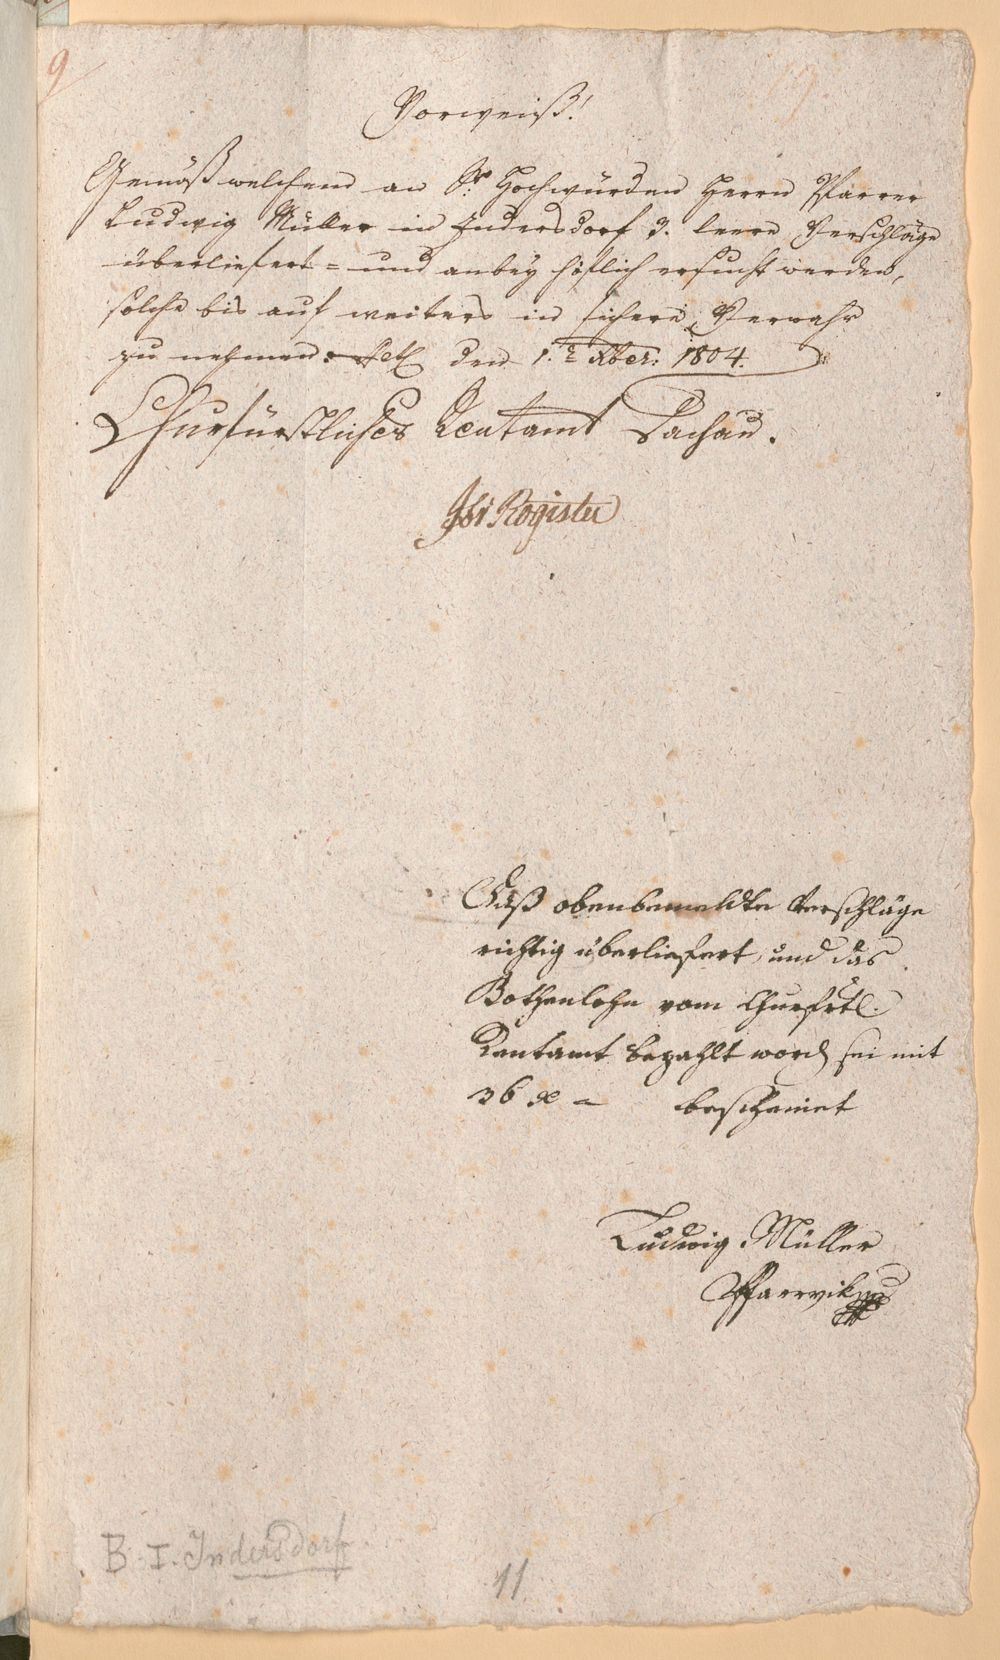 9
Vorweiß!
Gemäß welchem an Sr. Hochwürden Herrn Pfarrer
Ludwig Müller in Indersdorf 3. leere Verschläge
überliefert = und anbey höflich ersucht werden,
solche bis auf weiters in sichere Verwahr
zu nehmen. Act. den 1. Xber: 1804.
Churfürstliches Rentamt Dachau.
Register
Daß obenbemeldte Verschläge
richtig überliefert, und das
Bothenlohn vom Churfrtl.
Rentamt bezahlt word sei mit
36 x = bescheinet
Ludwig Müller
Pfarrvik
B. I. Indersdorf
11